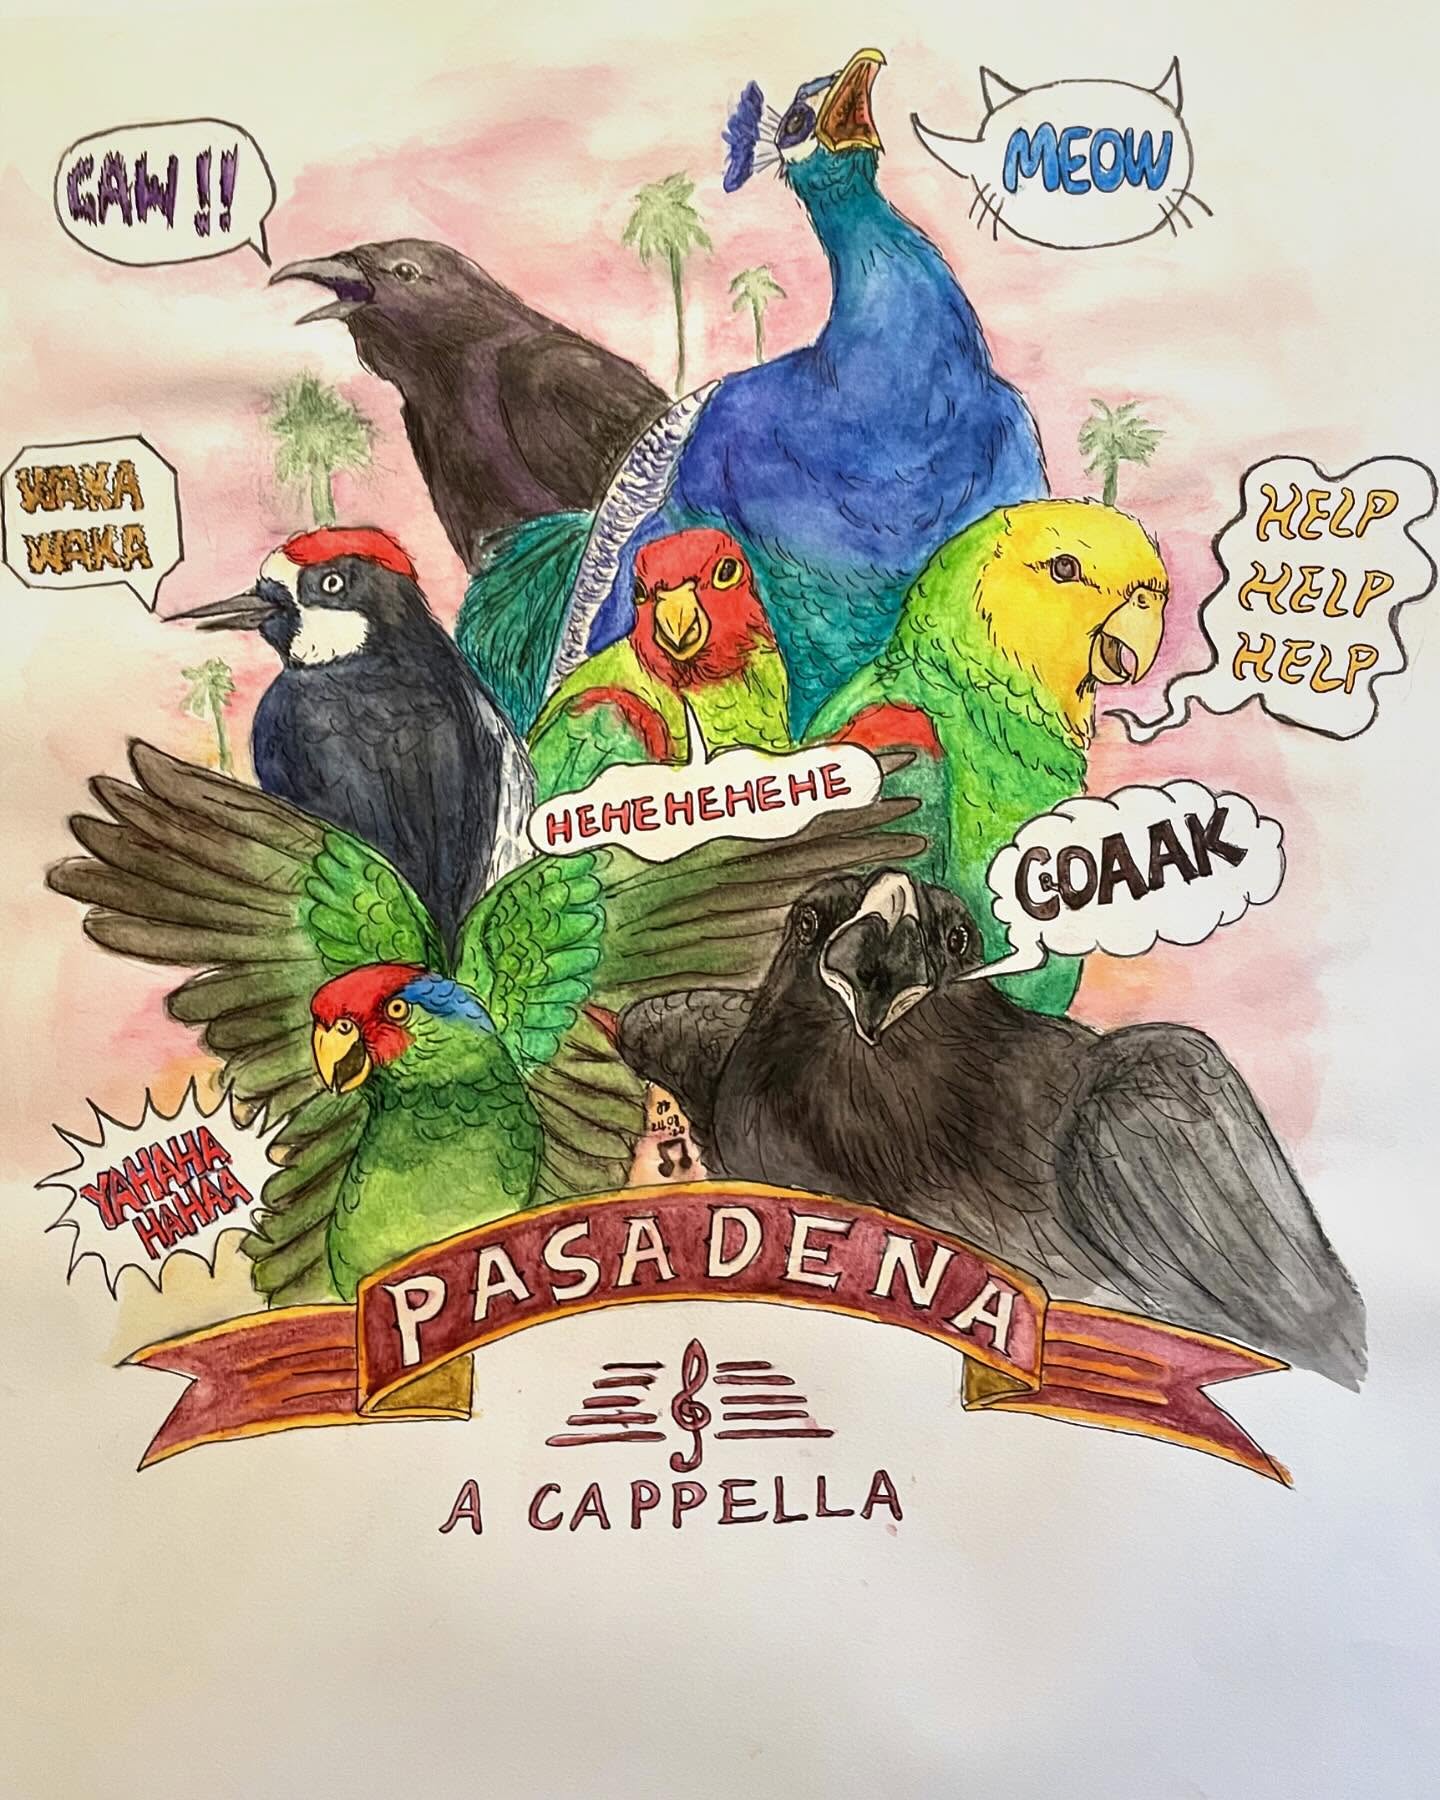 MEOW
CAW!!
WAKA
WAKA
HELP
HELP
HELP
HEHEHEHEHE
CROAAK
YAHAHA
HAHAA
24.08
PASADENA
A CAPPELLA